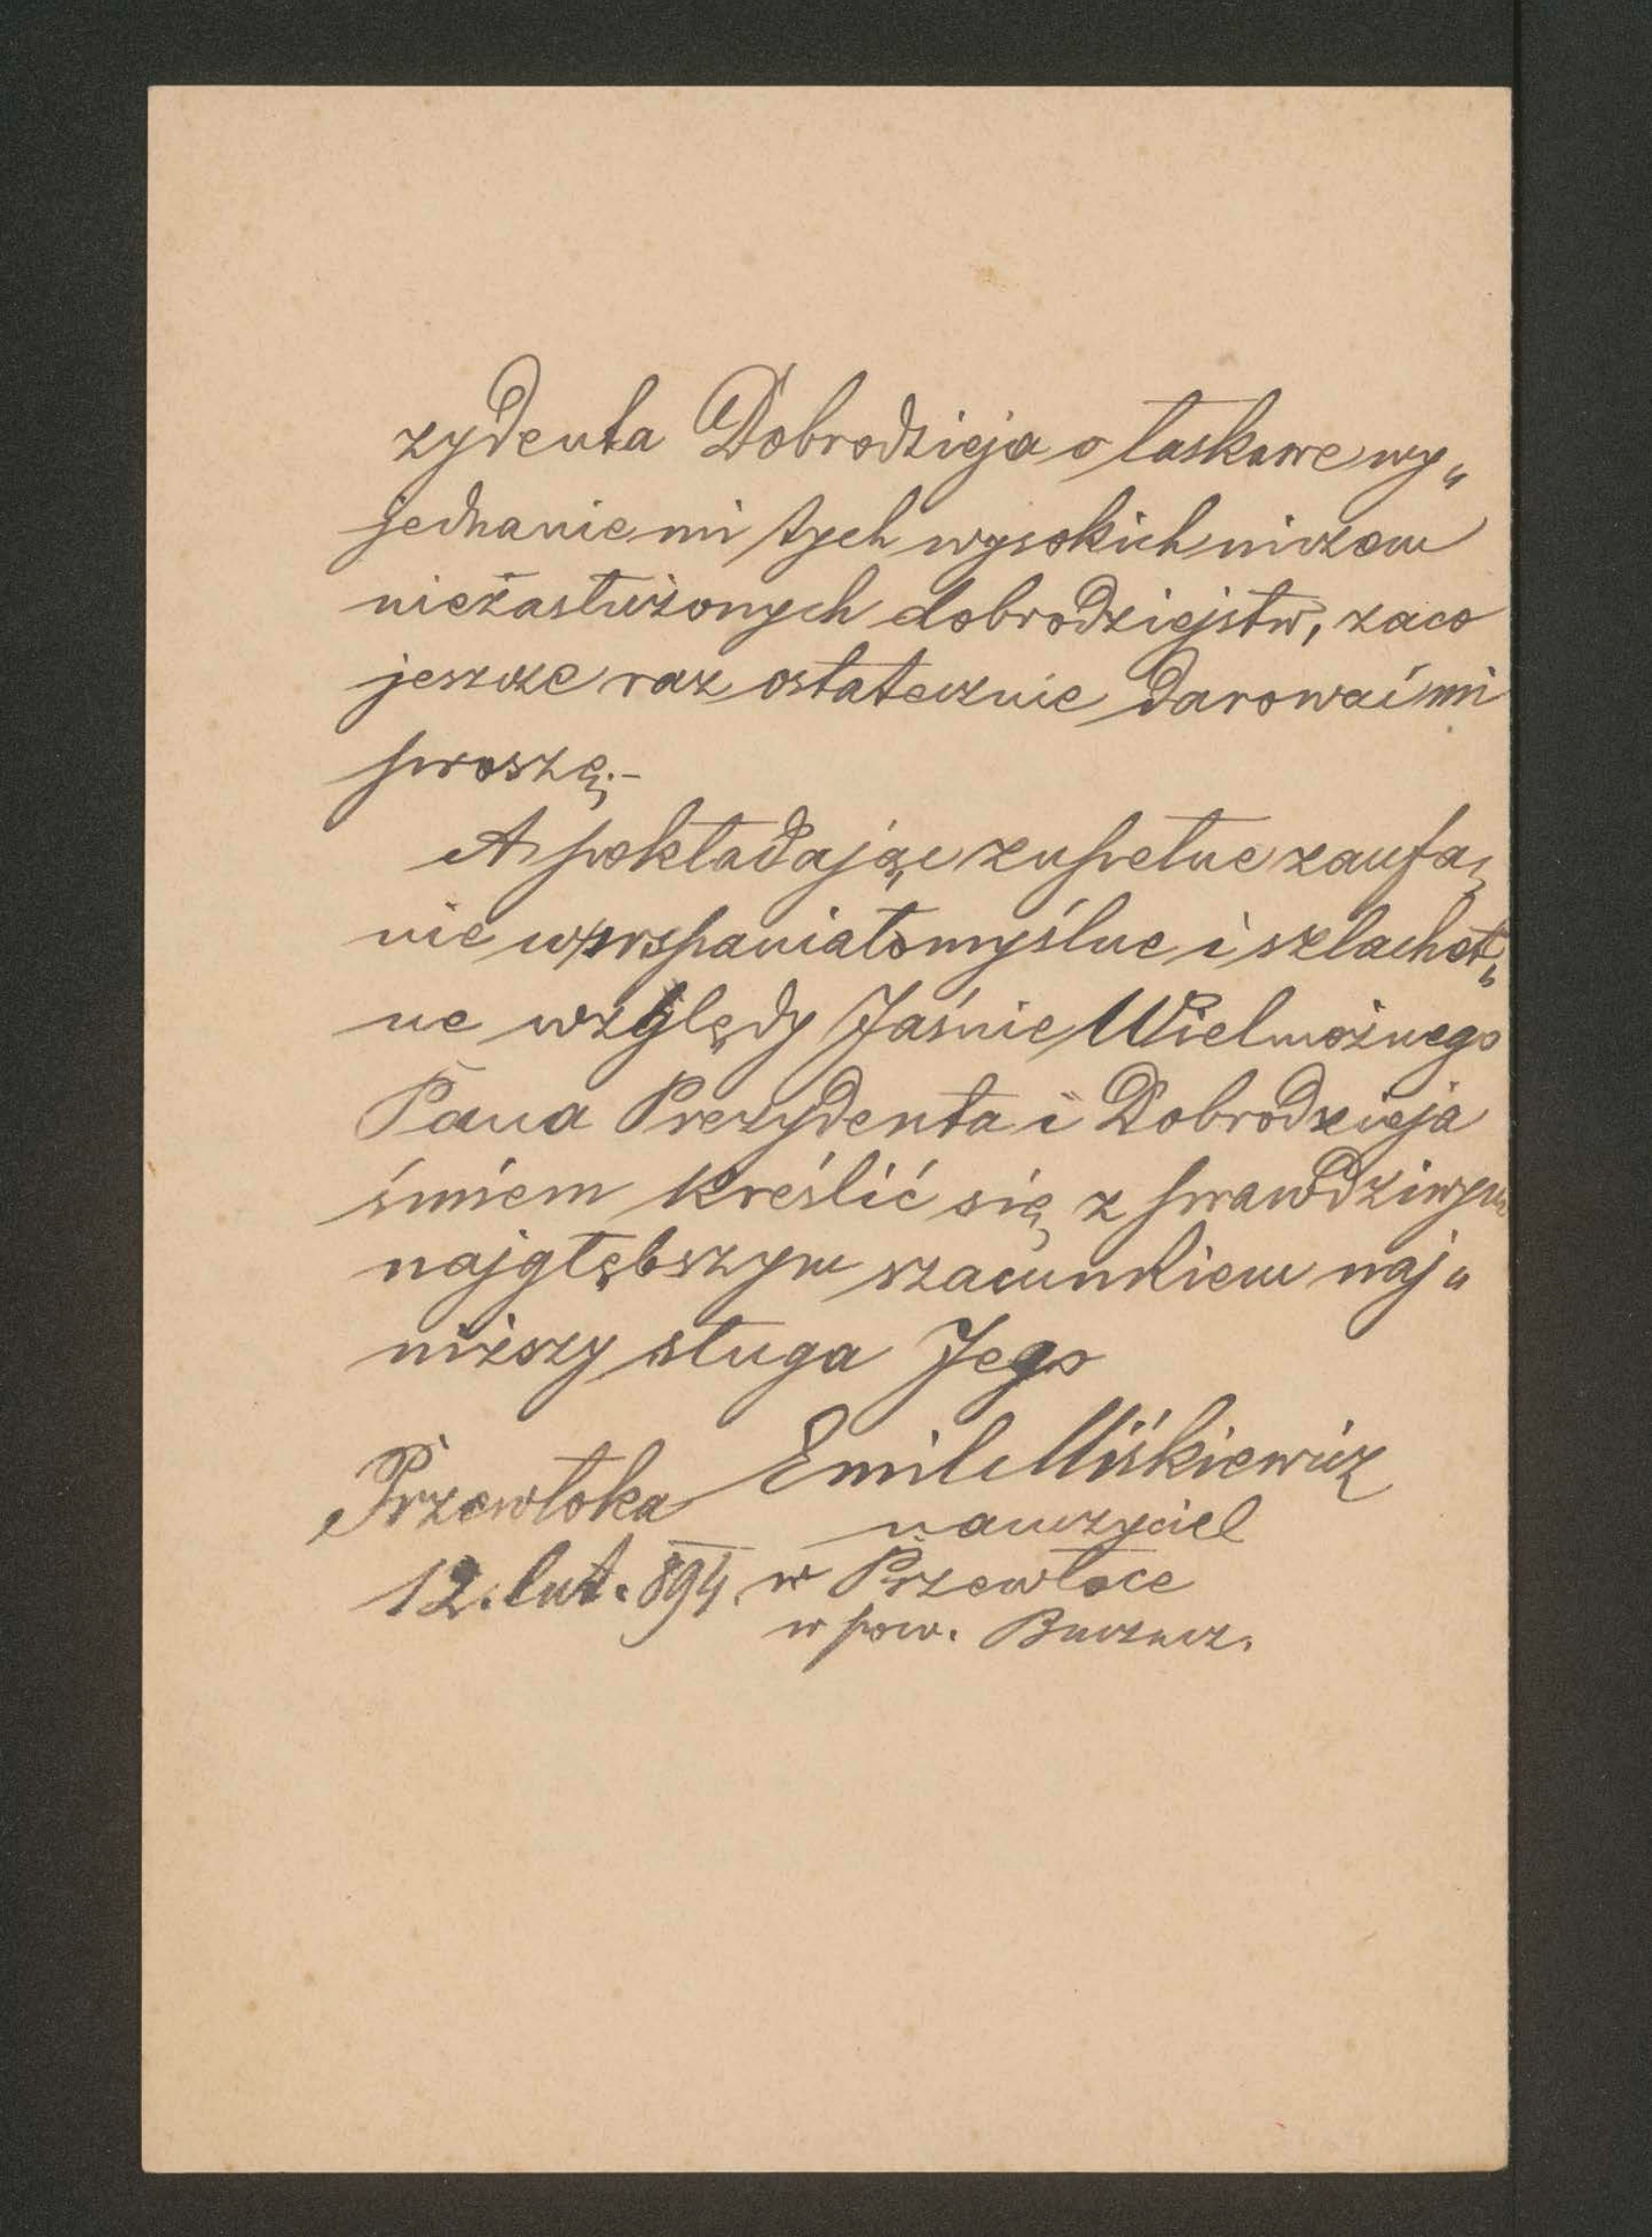 zydenta Dobrodzieja o łaskawe wy„
jednanie mi tych wysokich niczem
niezasłużonych dobrodziejstw, zaco
jeszcze raz ostatecznie darować mi
proszę.-
A pokładając zupełne zaufa„
nie w wspaniałomyślne i szlachet„
ne względy Jaśnie Wielmożnego
Pana Prezydenta i Dobrodzieja
śmiem kreślić się z prawdziwym
najgłębszym szacunkiem naj„
niższy sługa Jego
Emil Miśkiewicz
Przewłoka nauczyciel
12. lut. 894 w Przewłoce
w pow. Buczacz.